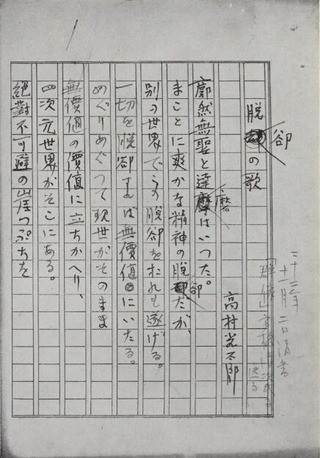 1
十一月二日清書
脱卻の歌
高村光太郎
廓然無聖と達磨はいつた。
まことに爽かな精神の脱卻だが、
別の世界でこの脱卻をおれも遂げる。
一切を脱卻すれば無價値にいたる。
めぐりめぐつて現世がそのまま
無價値の價値に立ちかへり、
四次元世界がそこにある。
絶對不可避の崖つぷちを